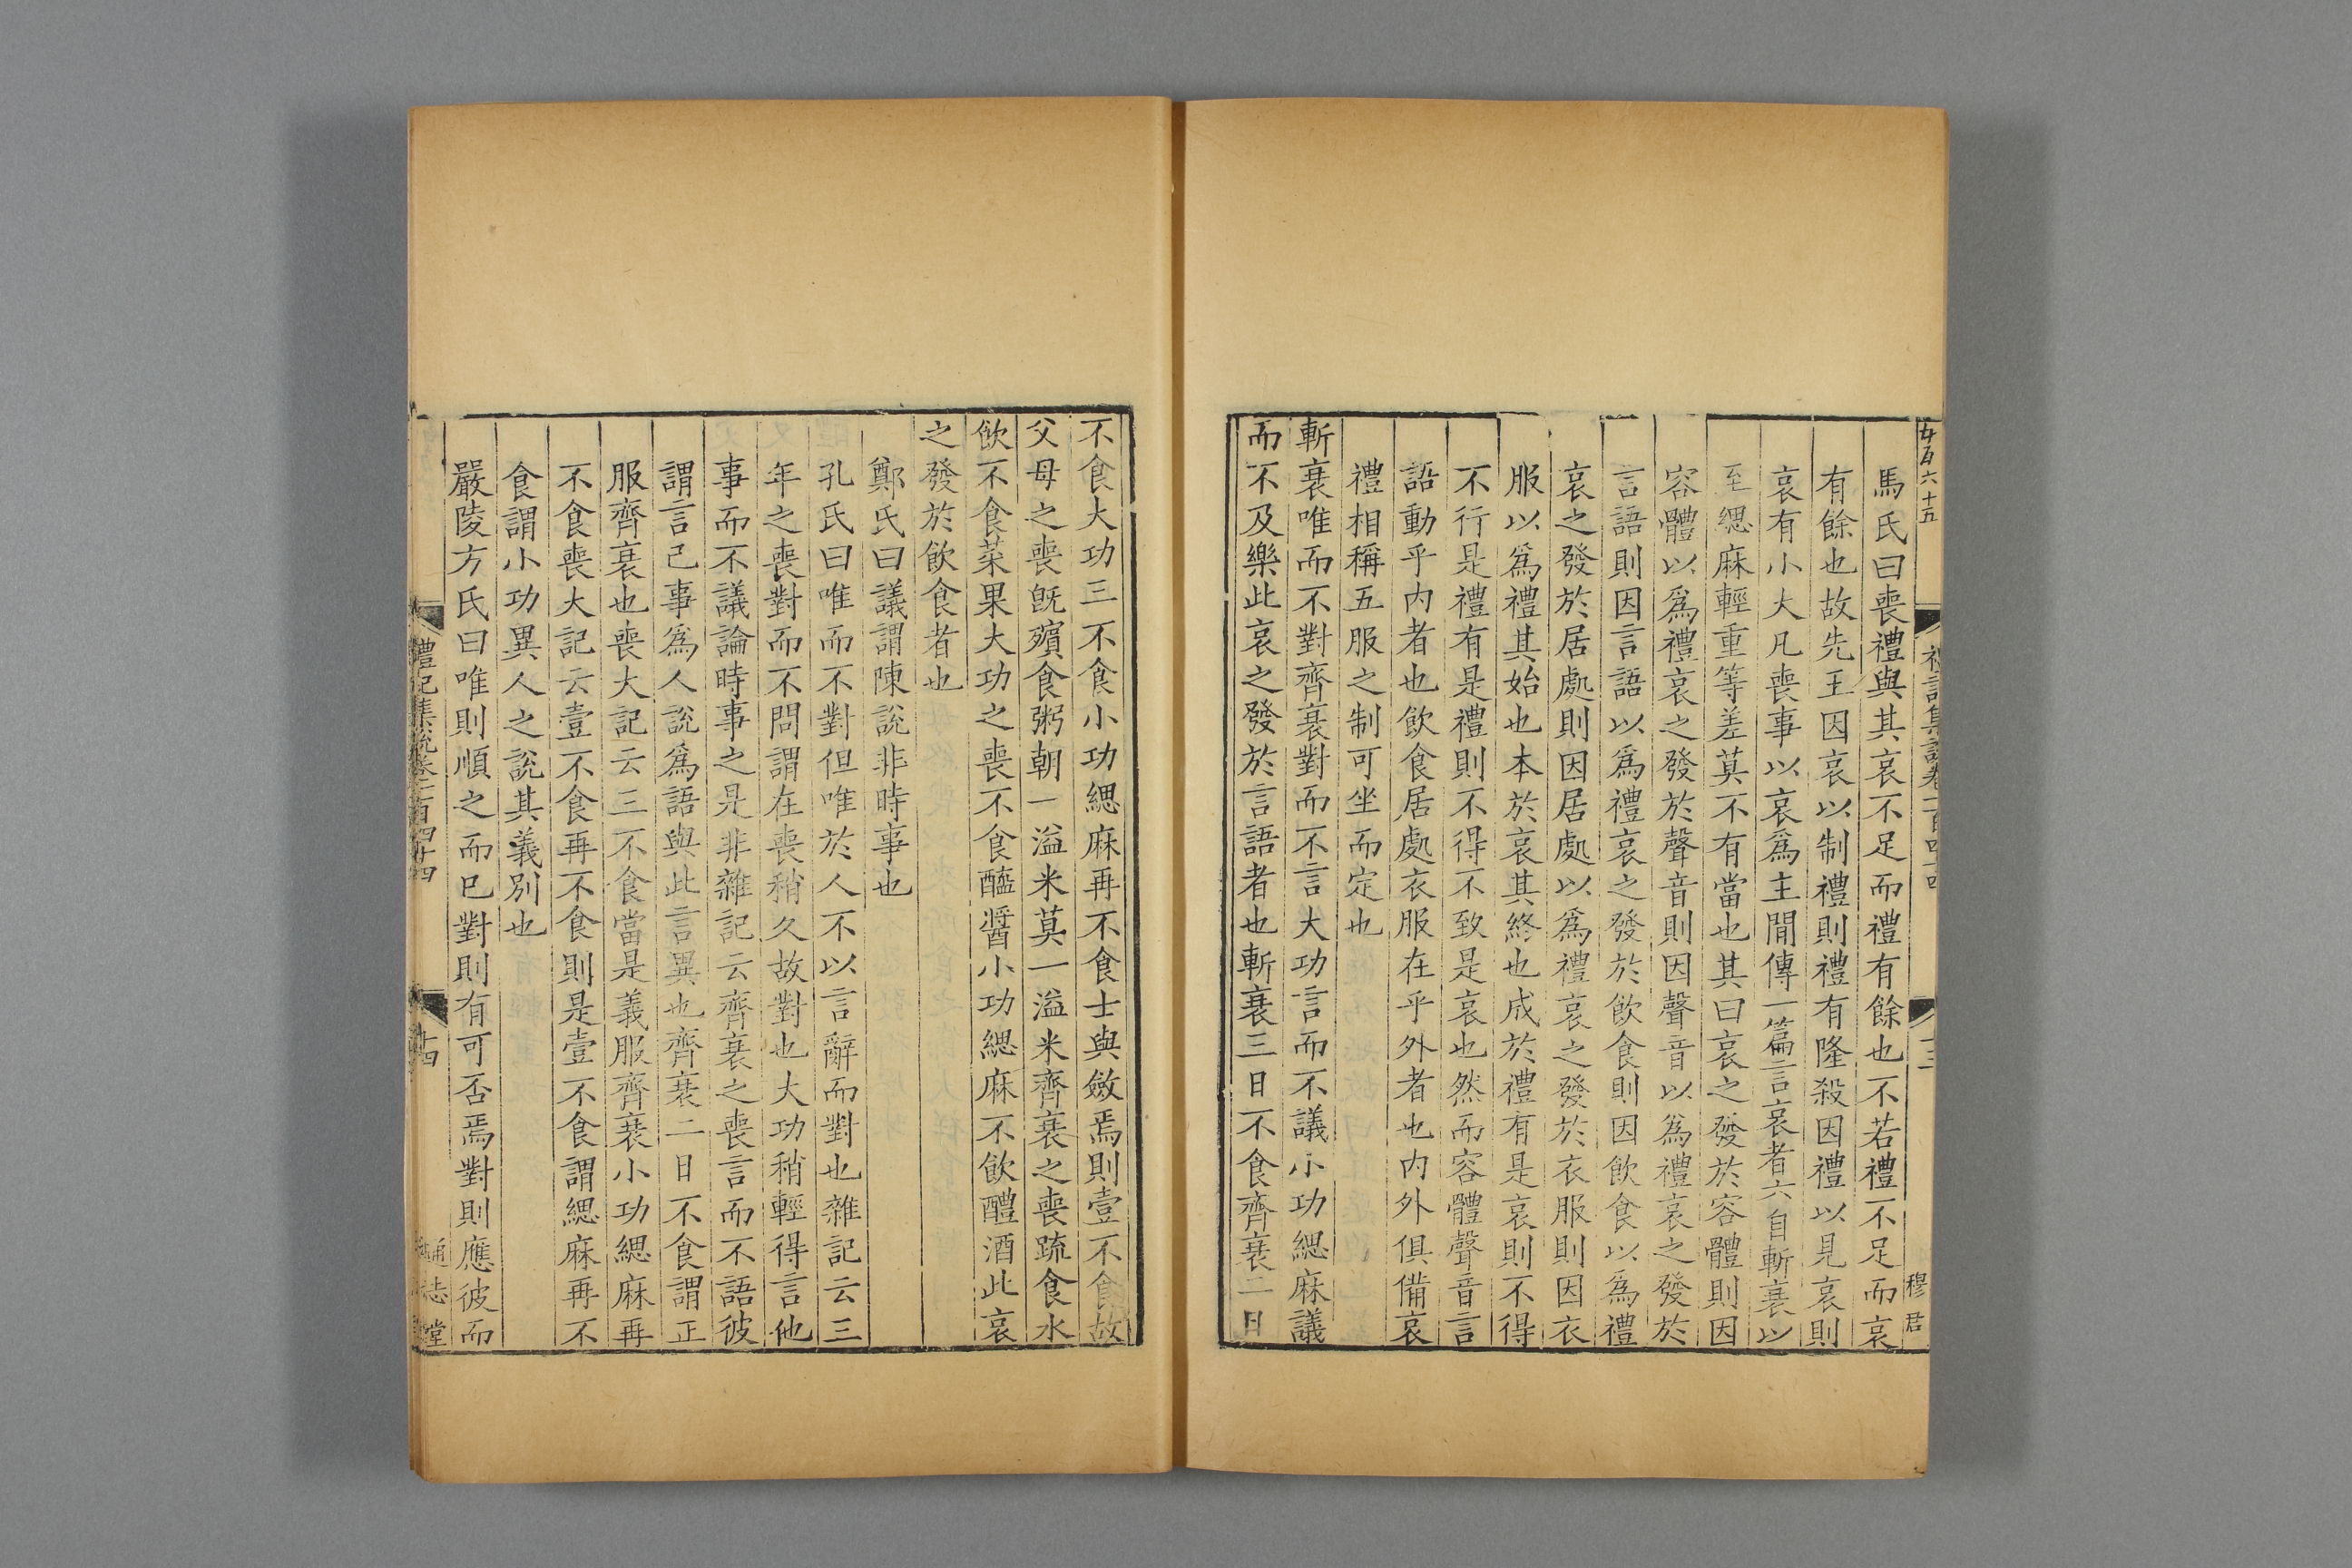 馬氏曰喪禮與其哀不足而禮有餘也不若禮不足而哀
有餘也故先王因哀以制禮則禮有隆殺因禮以見哀則
哀有小大凡喪事以哀爲主閒傳一篇言哀者六自斬衰以
至緦麻輕重等差莫不有當也其曰哀之發於容體則因
容體以爲禮哀之發於聲音則因聲音以爲禮哀之發於
言語則因言語以爲禮哀之發於飲食則因飲食以爲禮
哀之發於居處則因居處以爲禮哀之發於衣服則因衣
服以爲禮其始也本於哀其終也成於禮有是哀則不得
不行是禮有是禮則不得不致是哀也然而容體聲音言
語動乎内者也飲食居處衣服在乎外者也内外俱備哀
禮相稱五服之制可坐而定也
斬衰唯而不對齊衰對而不言大功言而不議小功緦麻議
而不及樂此哀之發於言語者也斬衰三日不食齊衰二日
不食大功三不食小功緦麻再不食士與斂焉則壹不食故
父母之喪旣殯食粥朝一溢米莫一溢米齊衰之喪疏食水
飲不食菜果大功之喪不食醯醬小功緦麻不飲醴酒此哀
之發於飲食者也
鄭氏曰議謂陳說非時事也
孔氏曰唯而不對但唯於人不以言辭而對也雜記云三
年之喪對而不問謂在喪稍久故對也大功稍輕得言他
事而不議論時事之是非雜記云齊衰之喪言而不語彼
謂言己事爲人說爲語與此言異也齊衰二日不食謂正
服齊衰也喪大記云三不食當是義服齊衰小功緦麻再
不食喪大記云壹不食再不食則是壹不食謂緦麻再不
食謂小功異人之說其義別也
嚴陵方氏曰唯則順之而已對則有可否焉對則應彼而
禮記集說卷一百四十四
十四
通志堂